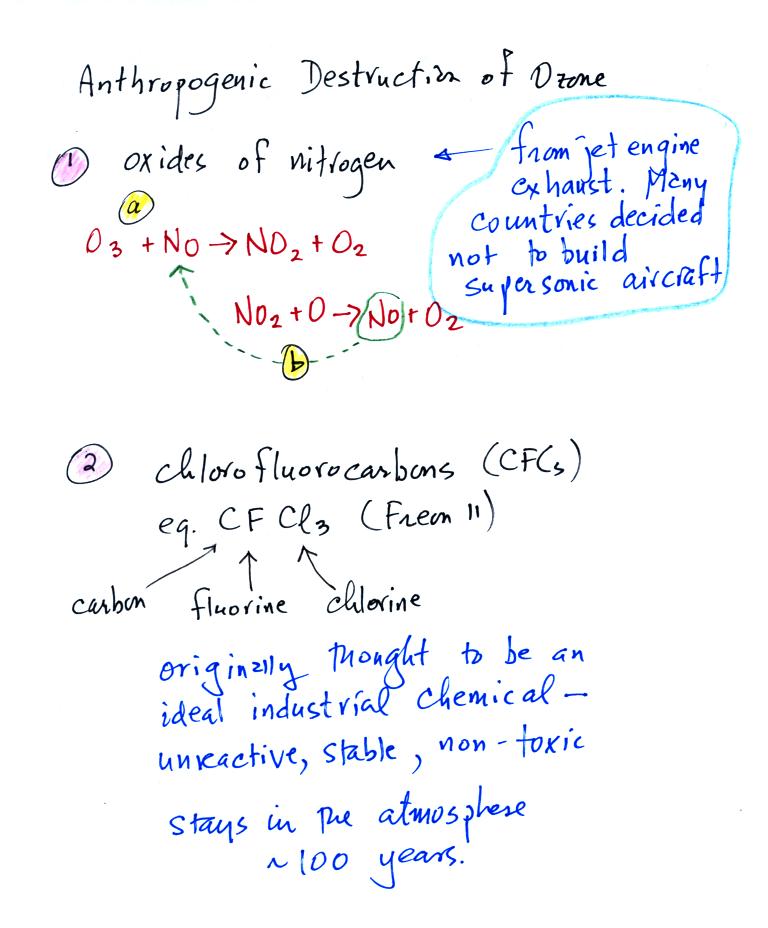 Anthropogenic Destruction of Ozone
1 oxides of nitrogen ←
from jet engine
exhaust. Many
countries decided
not to build
supersonic aircraft
a
O3 + NO → NO2 + O2
NO2 + O → NO + O2
b
2 chlorofluorocarbons (CFCs)
eg. CF Cl3 (Freon 11)
carbon fluorine chlorine
originally thought to be an
ideal industrial chemical –
unreactive, stable, non-toxic
stays in the atmosphere
~100 years.